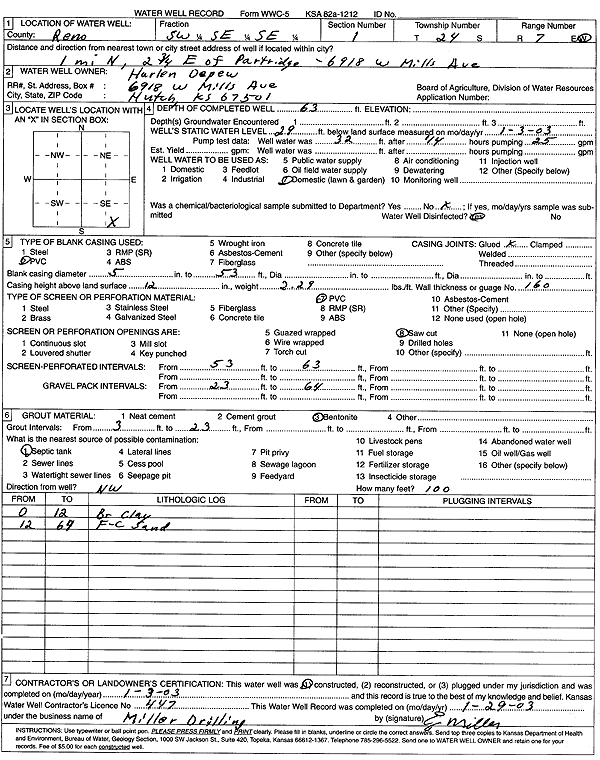 WATER WELL RECORD Form WWC-5 KSA 82a-1212 ID No.
1 LOCATION OF WATER WELL: Fraction Section Number Township Number Range Number
County: Reno SW ¼ SE ¼ SE ¼ 1 T 24 S R 7 E/W
Distance and direction from nearest town or city street address of well if located within city?
1 mi N, 2 3/4 E of Partridge - 6918 W Mills Ave
2 WATER WELL OWNER: Harlen Depew
RR#, St. Address, Box # : 6918 W Mills Ave Board of Agriculture, Division of Water Resources
City, State, ZIP Code : Hutch KS 67501 Application Number:
3 LOCATE WELL'S LOCATION WITH AN "X" IN SECTION BOX:
N
NW NE
W E
SW SE
X
S
4 DEPTH OF COMPLETED WELL 63 ft. ELEVATION:
Depth(s) Groundwater Encountered 1 ft. 2 ft. 3 ft.
WELL'S STATIC WATER LEVEL 29 ft. below land surface measured on mo/day/yr 1-3-03
Pump test data: Well water was 32 ft. after 44 hours pumping 25 gpm
Est. Yield gpm: Well water was ft. after hours pumping gpm
WELL WATER TO BE USED AS: 5 Public water supply 8 Air conditioning 11 Injection well
1 Domestic 3 Feedlot 6 Oil field water supply 9 Dewatering 12 Other (Specify below)
2 Irrigation 4 Industrial 7 Domestic (lawn & garden) 10 Monitoring well
Was a chemical/bacteriological sample submitted to Department? Yes No X ; If yes, mo/day/yrs sample was submitted
Water Well Disinfected? Yes No
5 TYPE OF BLANK CASING USED: 5 Wrought iron 8 Concrete tile CASING JOINTS: Glued X Clamped
1 Steel 3 RMP (SR) 6 Asbestos-Cement 9 Other (specify below) Welded
2 PVC 4 ABS 7 Fiberglass Threaded
Blank casing diameter 5 in. to 53 ft., Dia in. to ft., Dia in. to ft.
Casing height above land surface 12 in., weight 2.29 lbs./ft. Wall thickness or guage No. 160
TYPE OF SCREEN OR PERFORATION MATERIAL: 7 PVC 10 Asbestos-Cement
1 Steel 3 Stainless Steel 5 Fiberglass 8 RMP (SR) 11 Other (Specify)
2 Brass 4 Galvanized Steel 6 Concrete tile 9 ABS 12 None used (open hole)
SCREEN OR PERFORATION OPENINGS ARE: 5 Guazed wrapped 8 Saw cut 11 None (open hole)
1 Continuous slot 3 Mill slot 6 Wire wrapped 9 Drilled holes
2 Louvered shutter 4 Key punched 7 Torch cut 10 Other (specify) ft.
SCREEN-PERFORATED INTERVALS: From 53 ft. to 63 ft., From ft. to ft.
From ft. to ft., From ft. to ft.
GRAVEL PACK INTERVALS: From 23 ft. to 64 ft., From ft. to ft.
From ft. to ft., From ft. to ft.
6 GROUT MATERIAL: 1 Neat cement 2 Cement grout 3 Bentonite 4 Other
Grout Intervals: From 3 ft. to 23 ft., From ft. to ft., From ft. to ft.
What is the nearest source of possible contamination: 10 Livestock pens 14 Abandoned water well
1 Septic tank 4 Lateral lines 7 Pit privy 11 Fuel storage 15 Oil well/Gas well
2 Sewer lines 5 Cess pool 8 Sewage lagoon 12 Fertilizer storage 16 Other (specify below)
3 Watertight sewer lines 6 Seepage pit 9 Feedyard 13 Insecticide storage
Direction from well? NW How many feet? 100
FROM TO LITHOLOGIC LOG FROM TO PLUGGING INTERVALS
0 12 Br Clay
12 64 F-C Sand
7 CONTRACTOR'S OR LANDOWNER'S CERTIFICATION: This water well was (1) constructed, (2) reconstructed, or (3) plugged under my jurisdiction and was
completed on (mo/day/year) 1-3-03 and this record is true to the best of my knowledge and belief. Kansas
Water Well Contractor's Licence No 447 This Water Well Record was completed on (mo/day/yr) 1-29-03
under the business name of Miller Drilling by (signature) E Miller
INSTRUCTIONS: Use typewriter or ball point pen. PLEASE PRESS FIRMLY and PRINT clearly. Please fill in blanks, underline or circle the correct answers. Send top three copies to Kansas Department of Health
and Environment, Bureau of Water, Geology Section, 1000 SW Jackson St., Suite 420, Topeka, Kansas 66612-1367. Telephone 785-296-5522. Send one to WATER WELL OWNER and retain one for your
records. Fee of $5.00 for each constructed well.